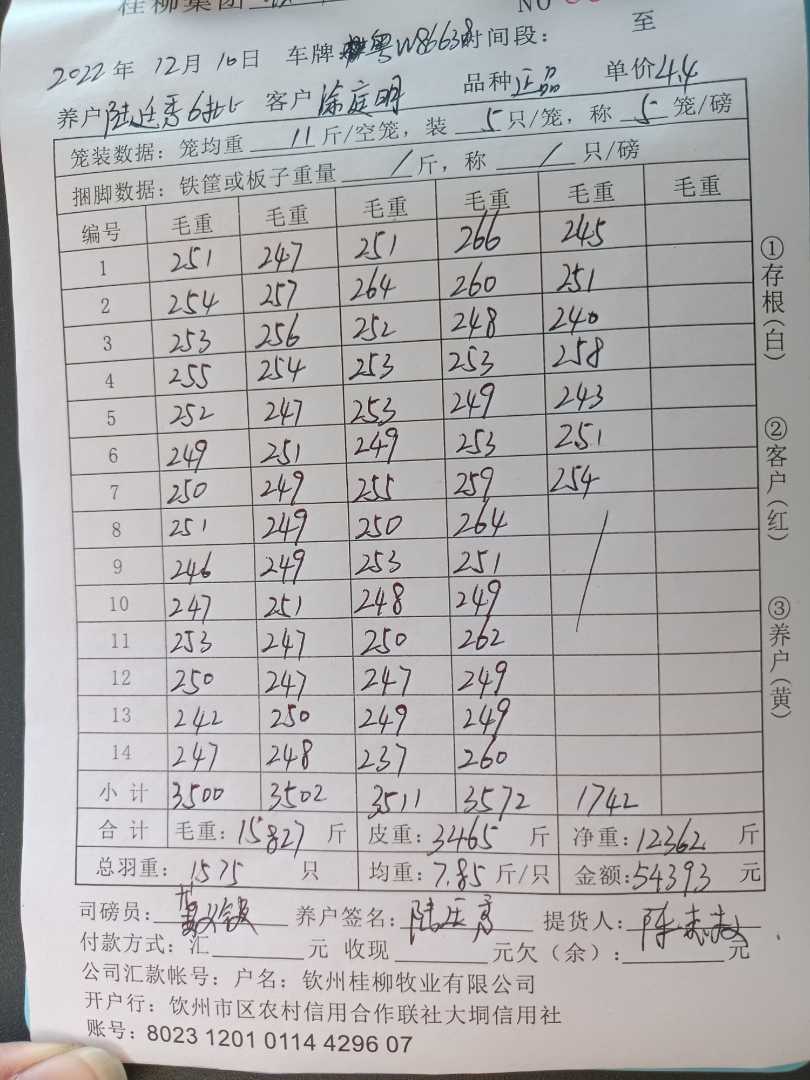 桂柳集团
NO
2022年 12月 10日 车牌 粤W8663 时间段： 至
养户 陆廷秀6批 客户 涂庭明 品种 正品 单价 4.4
笼装数据：笼均重 11 斤/空笼，装 5 只/笼，称 5 笼/磅
捆脚数据：铁筐或板子重量 / 斤，称 / 只/磅
编号 毛重 毛重 毛重 毛重 毛重 毛重
1 251 247 251 266 245
2 254 257 264 260 251
3 253 256 252 248 240
4 255 254 253 253 258
5 252 247 253 249 243
6 249 251 249 253 251
7 250 249 255 259 254
8 251 249 250 264
9 246 249 253 251
10 247 251 248 249
11 253 247 250 262
12 250 247 247 249
13 242 250 249 249
14 247 248 237 260
小计 3500 3502 3511 3572 1742
合计 毛重：15827 斤 皮重：3465 斤 净重：12362 斤
总羽重： 1575 只 均重：7.85 斤/只 金额：54393 元
司磅员： 养户签名：陆廷秀 提货人：陈
付款方式：汇 元 收现 元欠（余）： 元
公司汇款帐号：户名：钦州桂柳牧业有限公司
开户行：钦州市区农村信用合作联社大垌信用社
账号：8023 1201 0114 4296 07
①存根（白） ②客户（红） ③养户（黄）